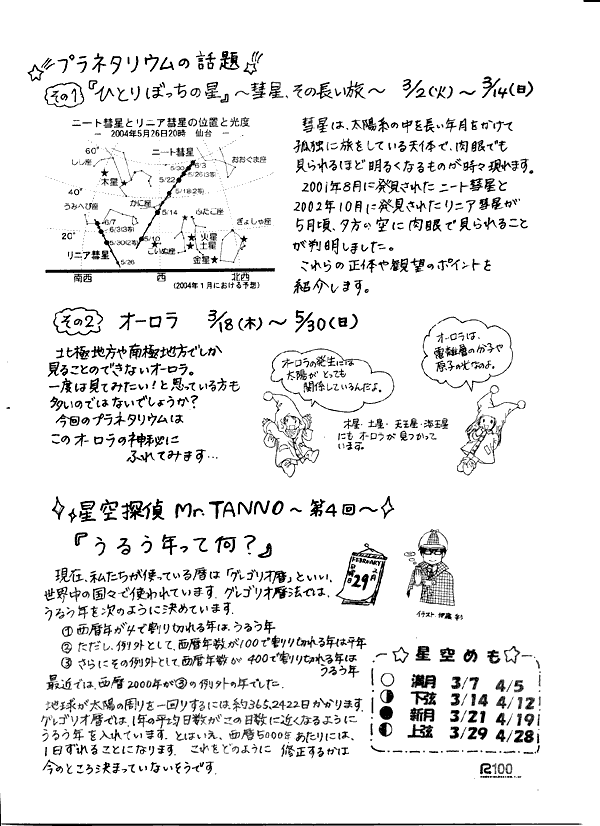 プラネタリウムの話題
その1 『ひとりぼっちの星』～彗星、その長い旅～ 3/2(火)～3/14(日)
ニート彗星とリニア彗星の位置と光度
－ 2004年5月26日20時 仙台 －
60°
しし座
ニート彗星
おおぐま座
木星
6/3
5/30
5/26(3等)
5/22
40°
5/18(2等)
かに座
うみへび座
5/14
ふたご座
ぎょしゃ座
6/7
6/3(3等)
20°
5/30(2等)
5/10
火星
土星
リニア彗星
こいぬ座
5/26
金星
南西
西
北西
(2004年1月における予想)
彗星は、太陽系の中を長い年月をかけて
孤独に旅をしている天体で、肉眼でも
見られるほど明るくなるものが時々現れます。
2001年8月に発見されたニート彗星と
2002年10月に発見されたリニア彗星が
5月頃、夕方の空に肉眼で見られること
が判明しました。
これらの正体や観望のポイントを
紹介します。
その2 オーロラ 3/18(木)～5/30(日)
北極地方や南極地方でしか
見ることのできないオーロラ。
一度は見てみたい!と思っている方も
多いのではないでしょうか?
今回のプラネタリウムは
このオーロラの神秘に
ふれてみます…
オーロラの発生には
太陽がとっても
関係しているんだよ。
オーロラは、
電離層の分子や
原子の光なのよ。
木星・土星・天王星・海王星
にもオーロラが見つかって
います。
星空探偵 Mr.TANNO～第4回～
『うるう年って何?』
現在、私たちが使っている暦は「グレゴリオ暦」といい、
世界中の国々で使われています。グレゴリオ暦法では、
うるう年を次のように決めています。
①西暦年が4で割り切れる年は、うるう年
②ただし、例外として、西暦年数が100で割り切れる年は平年
③さらにその例外として、西暦年数が400で割り切れる年は
うるう年
最近では、西暦2000年が③の例外の年でした。
地球が太陽の周りを一回りするには、約365.2422日かかります。
グレゴリオ暦では、1年の平均日数がこの日数に近くなるように
うるう年を入れています。とはいえ、西暦5000年あたりには、
1日ずれることになります。これをどのように修正するかは
今のところ決まっていないそうです。
FEBRUARY
2月
29
イラスト 伊藤
星空めも
満月 3/7 4/5
下弦 3/14 4/12
新月 3/21 4/19
上弦 3/29 4/28
R100